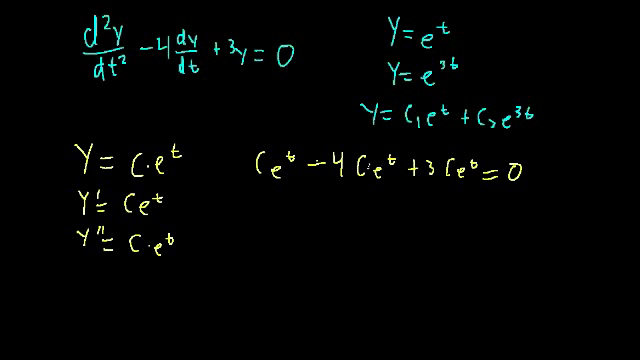 d²y/dt² - 4 dy/dt + 3y = 0
y = e^t
y = e^{3t}
y = c₁e^t + c₂e^{3t}
y = c·e^t
y' = ce^t
y'' = c·e^t
ce^t - 4c·e^t + 3ce^t = 0